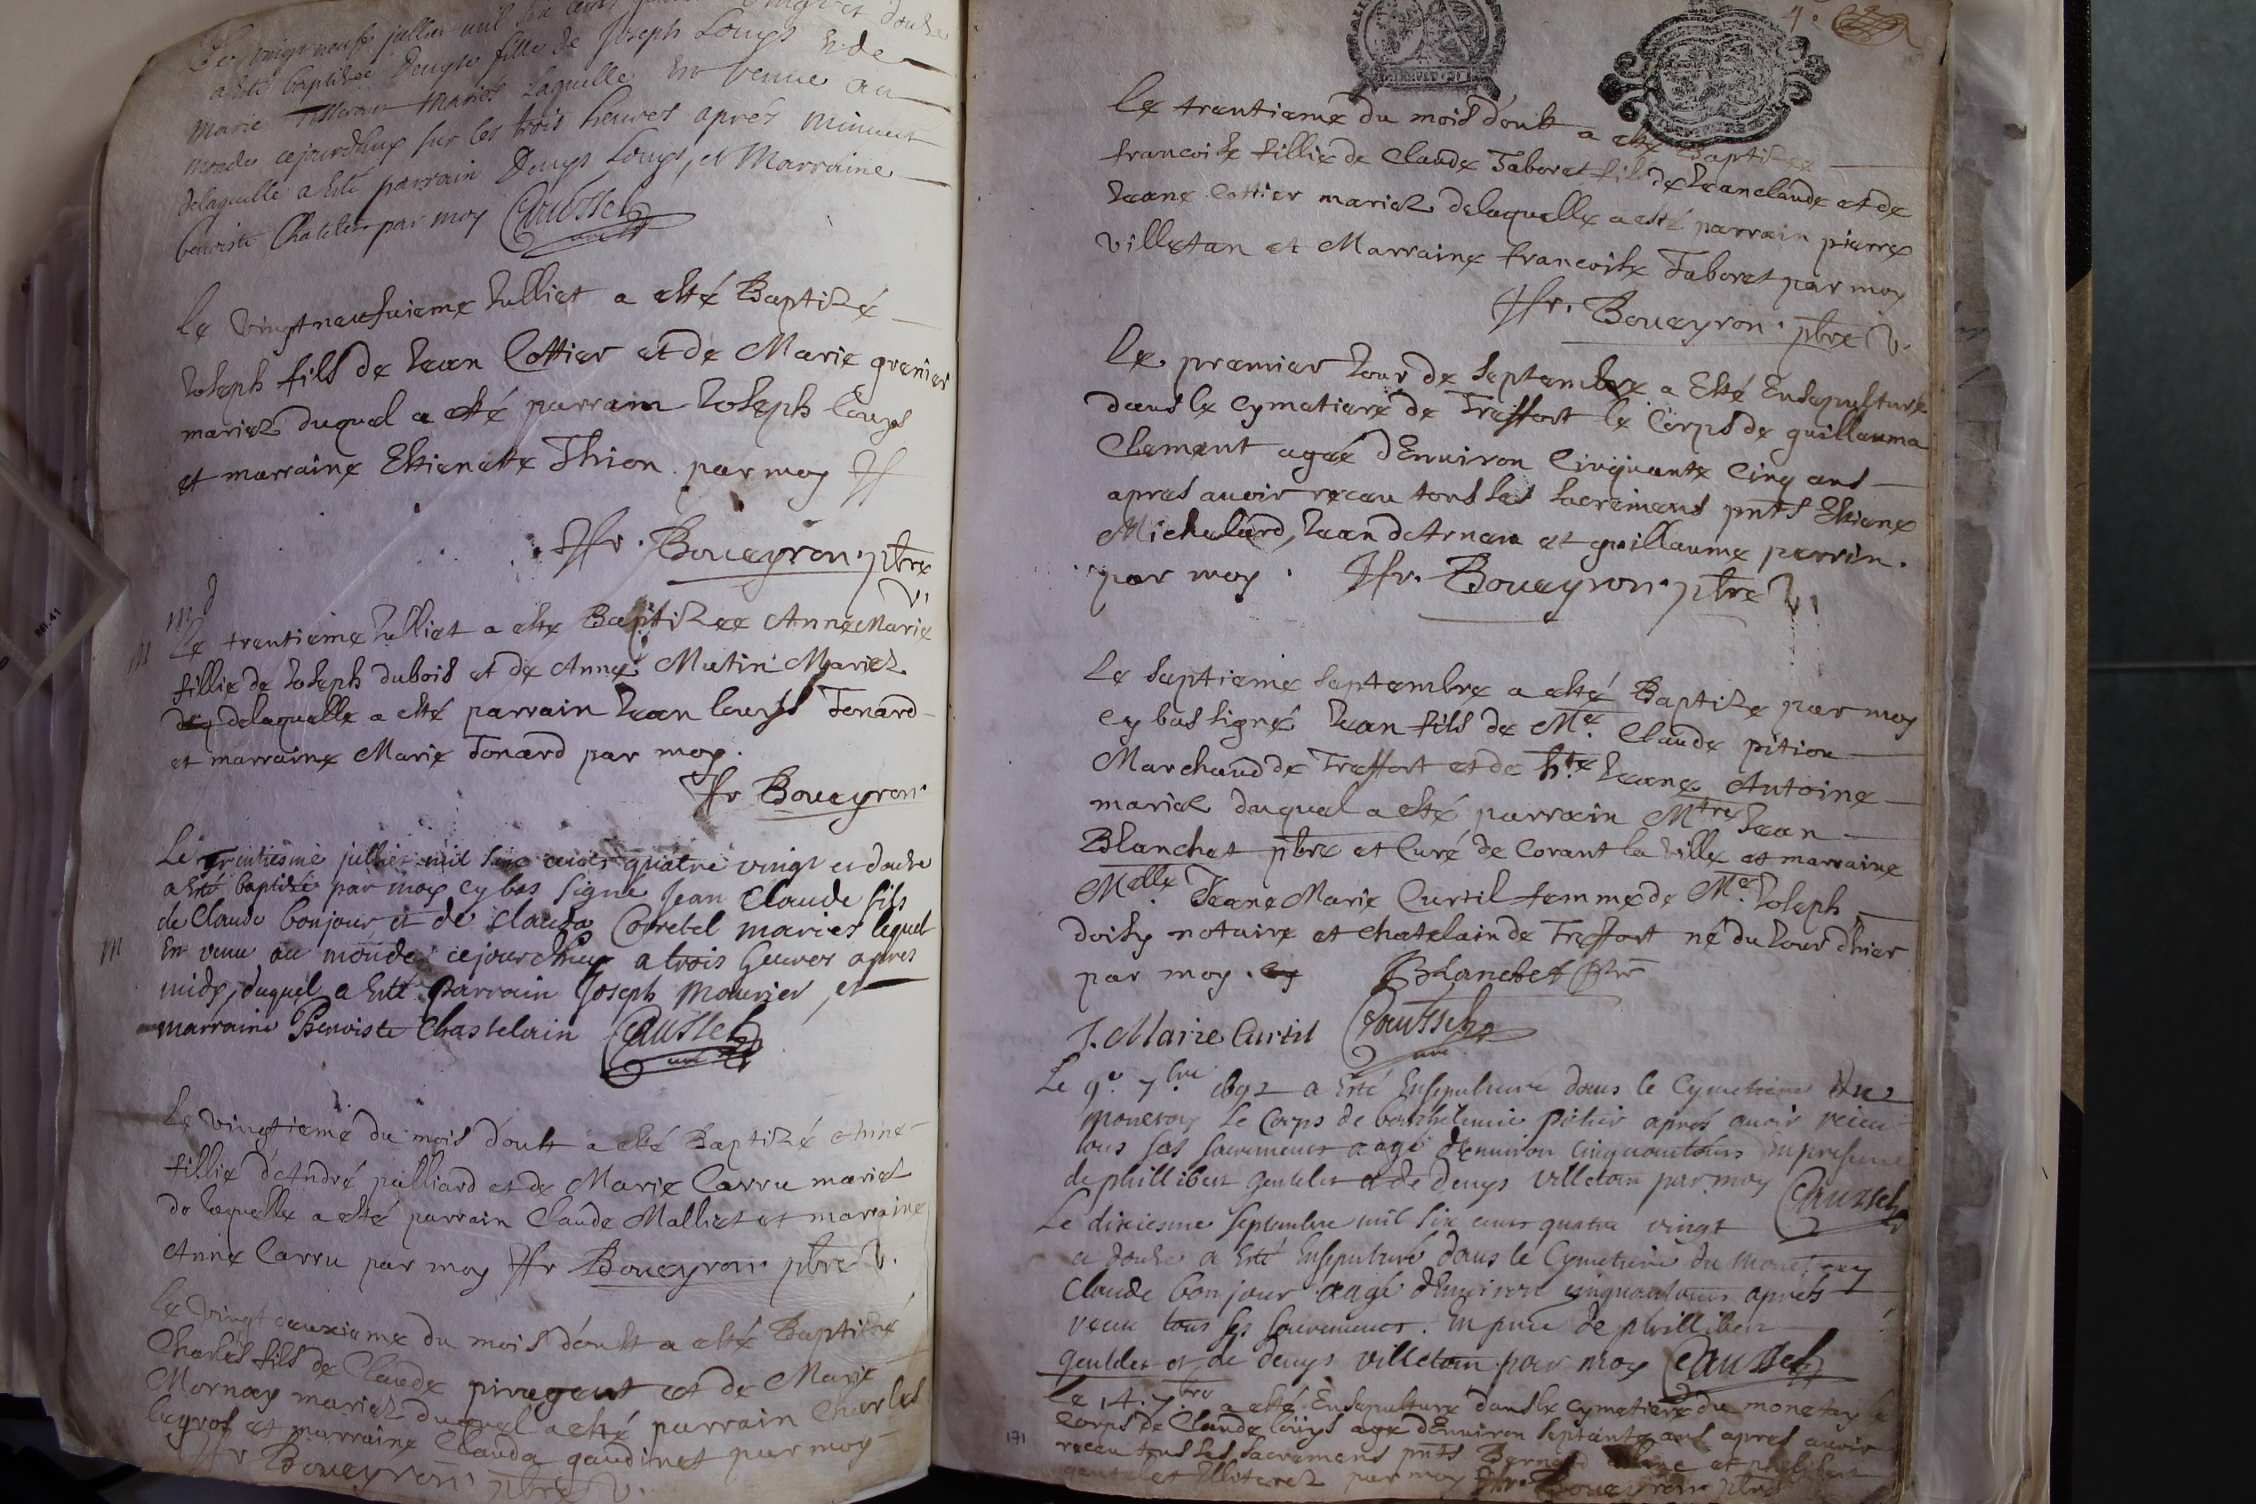 Le vingt neuf juillet mil six cents quatre vingt et douze
a esté baptisée Denyse fille de Joseph Louys et de
Marie mariés laquelle est venue au
monde cejourdhuy sur les trois heures aprés minuict
delaquelle a esté parrain Denys Louys, et Marraine
benoiste Chatelin par moy Caussel
Le vingtneufuieme Iulliet a esté Baptizé
Ioseph fils de Iean Cottier et de Marie grenier
mariez duquel a esté parrain Ioseph louys
et marraine Estienette Thion par moy
Boueyron ptre
v.
Le trentieme Iulliet a este Baptizee Anne Marie
fillie de Ioseph dubois et de Anne Mutin Mariez
delaquelle a esté parrain Iean louys Tonard
et marraine Marie Tonard par moy.
Boueyron
Le trentiesme juillet mil six cents quatre vingt et douze
a esté baptisé par moy cy bas signé Jean Claude fils
de Claude bonjour et de Clauda Corretel mariés lequel
est venu au monde cejourdhuy a trois heures apres
midy, duquel a esté parrain Joseph Mourier, et
marraine Benoiste Chastelain Caussel
M
M
Le vingtieme du mois d'oust a esté Baptizé Anne
fillie d'André pulliard et de Marie Carru mariez
de laquelle a esté parrain Claude Malliet et marraine
Anne Carru par moy Boueyron ptre v.
Le vingt deuxieme du mois d'oust a esté Baptisé
Charles fils de Claude piregent et de Marie
Mornay mariez duquel a esté parrain Charles
legros et marraine Clauda gaudinet par moy
Boueyron ptre v.
4.
Le trentieme du mois d'oust a esté Baptizee
francoise fillie de Claude Taboret fils de Ieanclaude et de
Ieane Cottier mariez delaquelle a esté parrain pierre
villetan et Marraine francoise Taboret par moy
Boueyron. ptre v.
Le premier Iour de Septembre a Esté Ensepulturé
dans le cymetiere de Treffort le Corps de guillauma
Clement agée d'Enuiron Cinquante Cinq ans
apres auoir receu tous les sacremens pnts Estiene
Michelard, Iean dArnau et guillaume perrin.
par moy. Boueyron. ptre v.
Le Septieme Septembre a esté Baptize par moy
cy bas signé Iean fils de Me. Claude pition
Marchand de Treffort et de hte. Ieane Antoine
mariez duquel a esté parrain Mtre Iean
Blanchet ptre et Curé de Corant la ville et marraine
Melle. Ieane Marie Curtil femme de Me. Ioseph
doisy notaire et chatelain de Treffort né du Iour d'hier
par moy. Blanchet ptre
J. Marie Curtil Caussel
Le 9e. 7bre 1692 a esté Ensepulturé dans le Cymetiere du
monetay le Corps de barthelemie pitier aprés auoir receu
tous ses sacremens aagé d'enuiron cinquante ans en presence
de phillibert gentelet et de Denys villetan par moy Caussel
Le dixiesme septembre mil six cents quatre vingt
et douze a esté Ensepulturé dans le Cymetiere du monetay
Claude bonjour aagé d'enuiron cinquante ans aprés
receu tous ses sacremens. En pnce de phillibert
gentelet et de denys villetan par moy Caussel
Le 14. 7bre a esté Ensepulturé dans le cymetiere du monetay le
Corps de Claude louys agé d'Enuiron septante ans apres auoir
receu tous ses sacremens pnts Bernard et philibert
gentelet Illiterez par moy Boueyron ptre
171